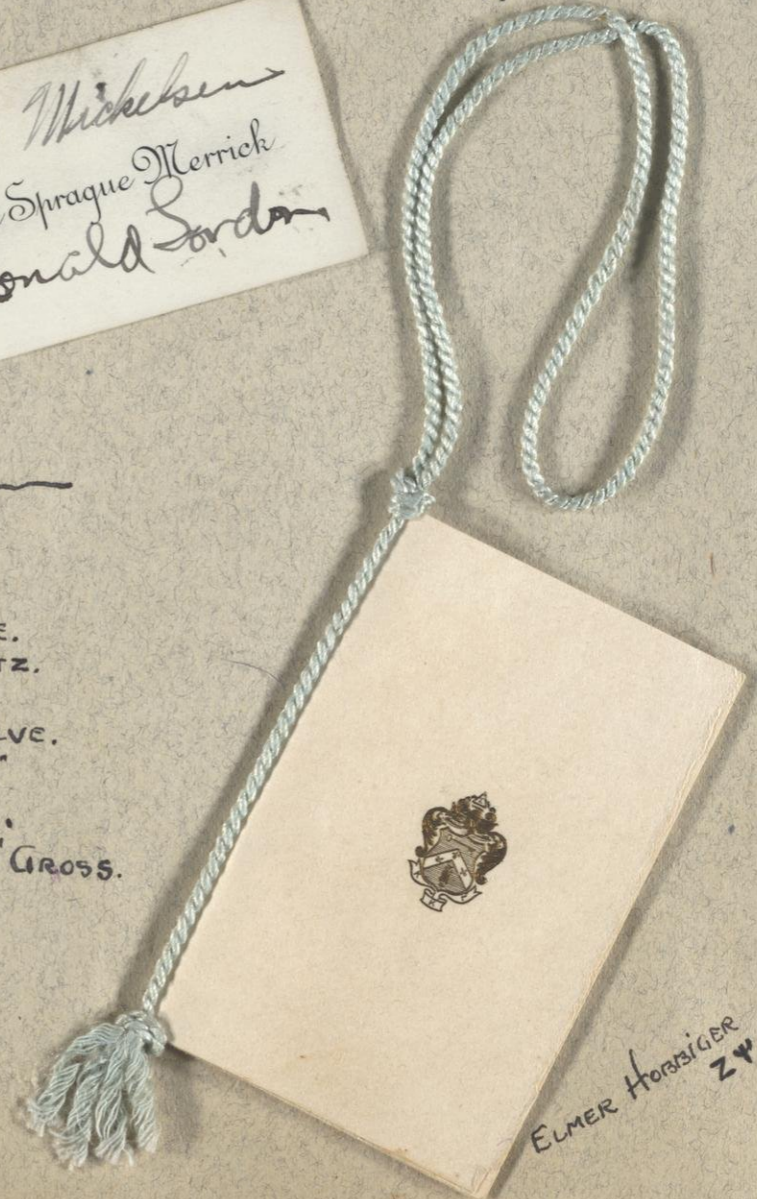 Mickelsen
Sprague Merrick
onald Gordon
E.
TZ.
LVE.
" GROSS.
ELMER HOBBIGER
ZΨ